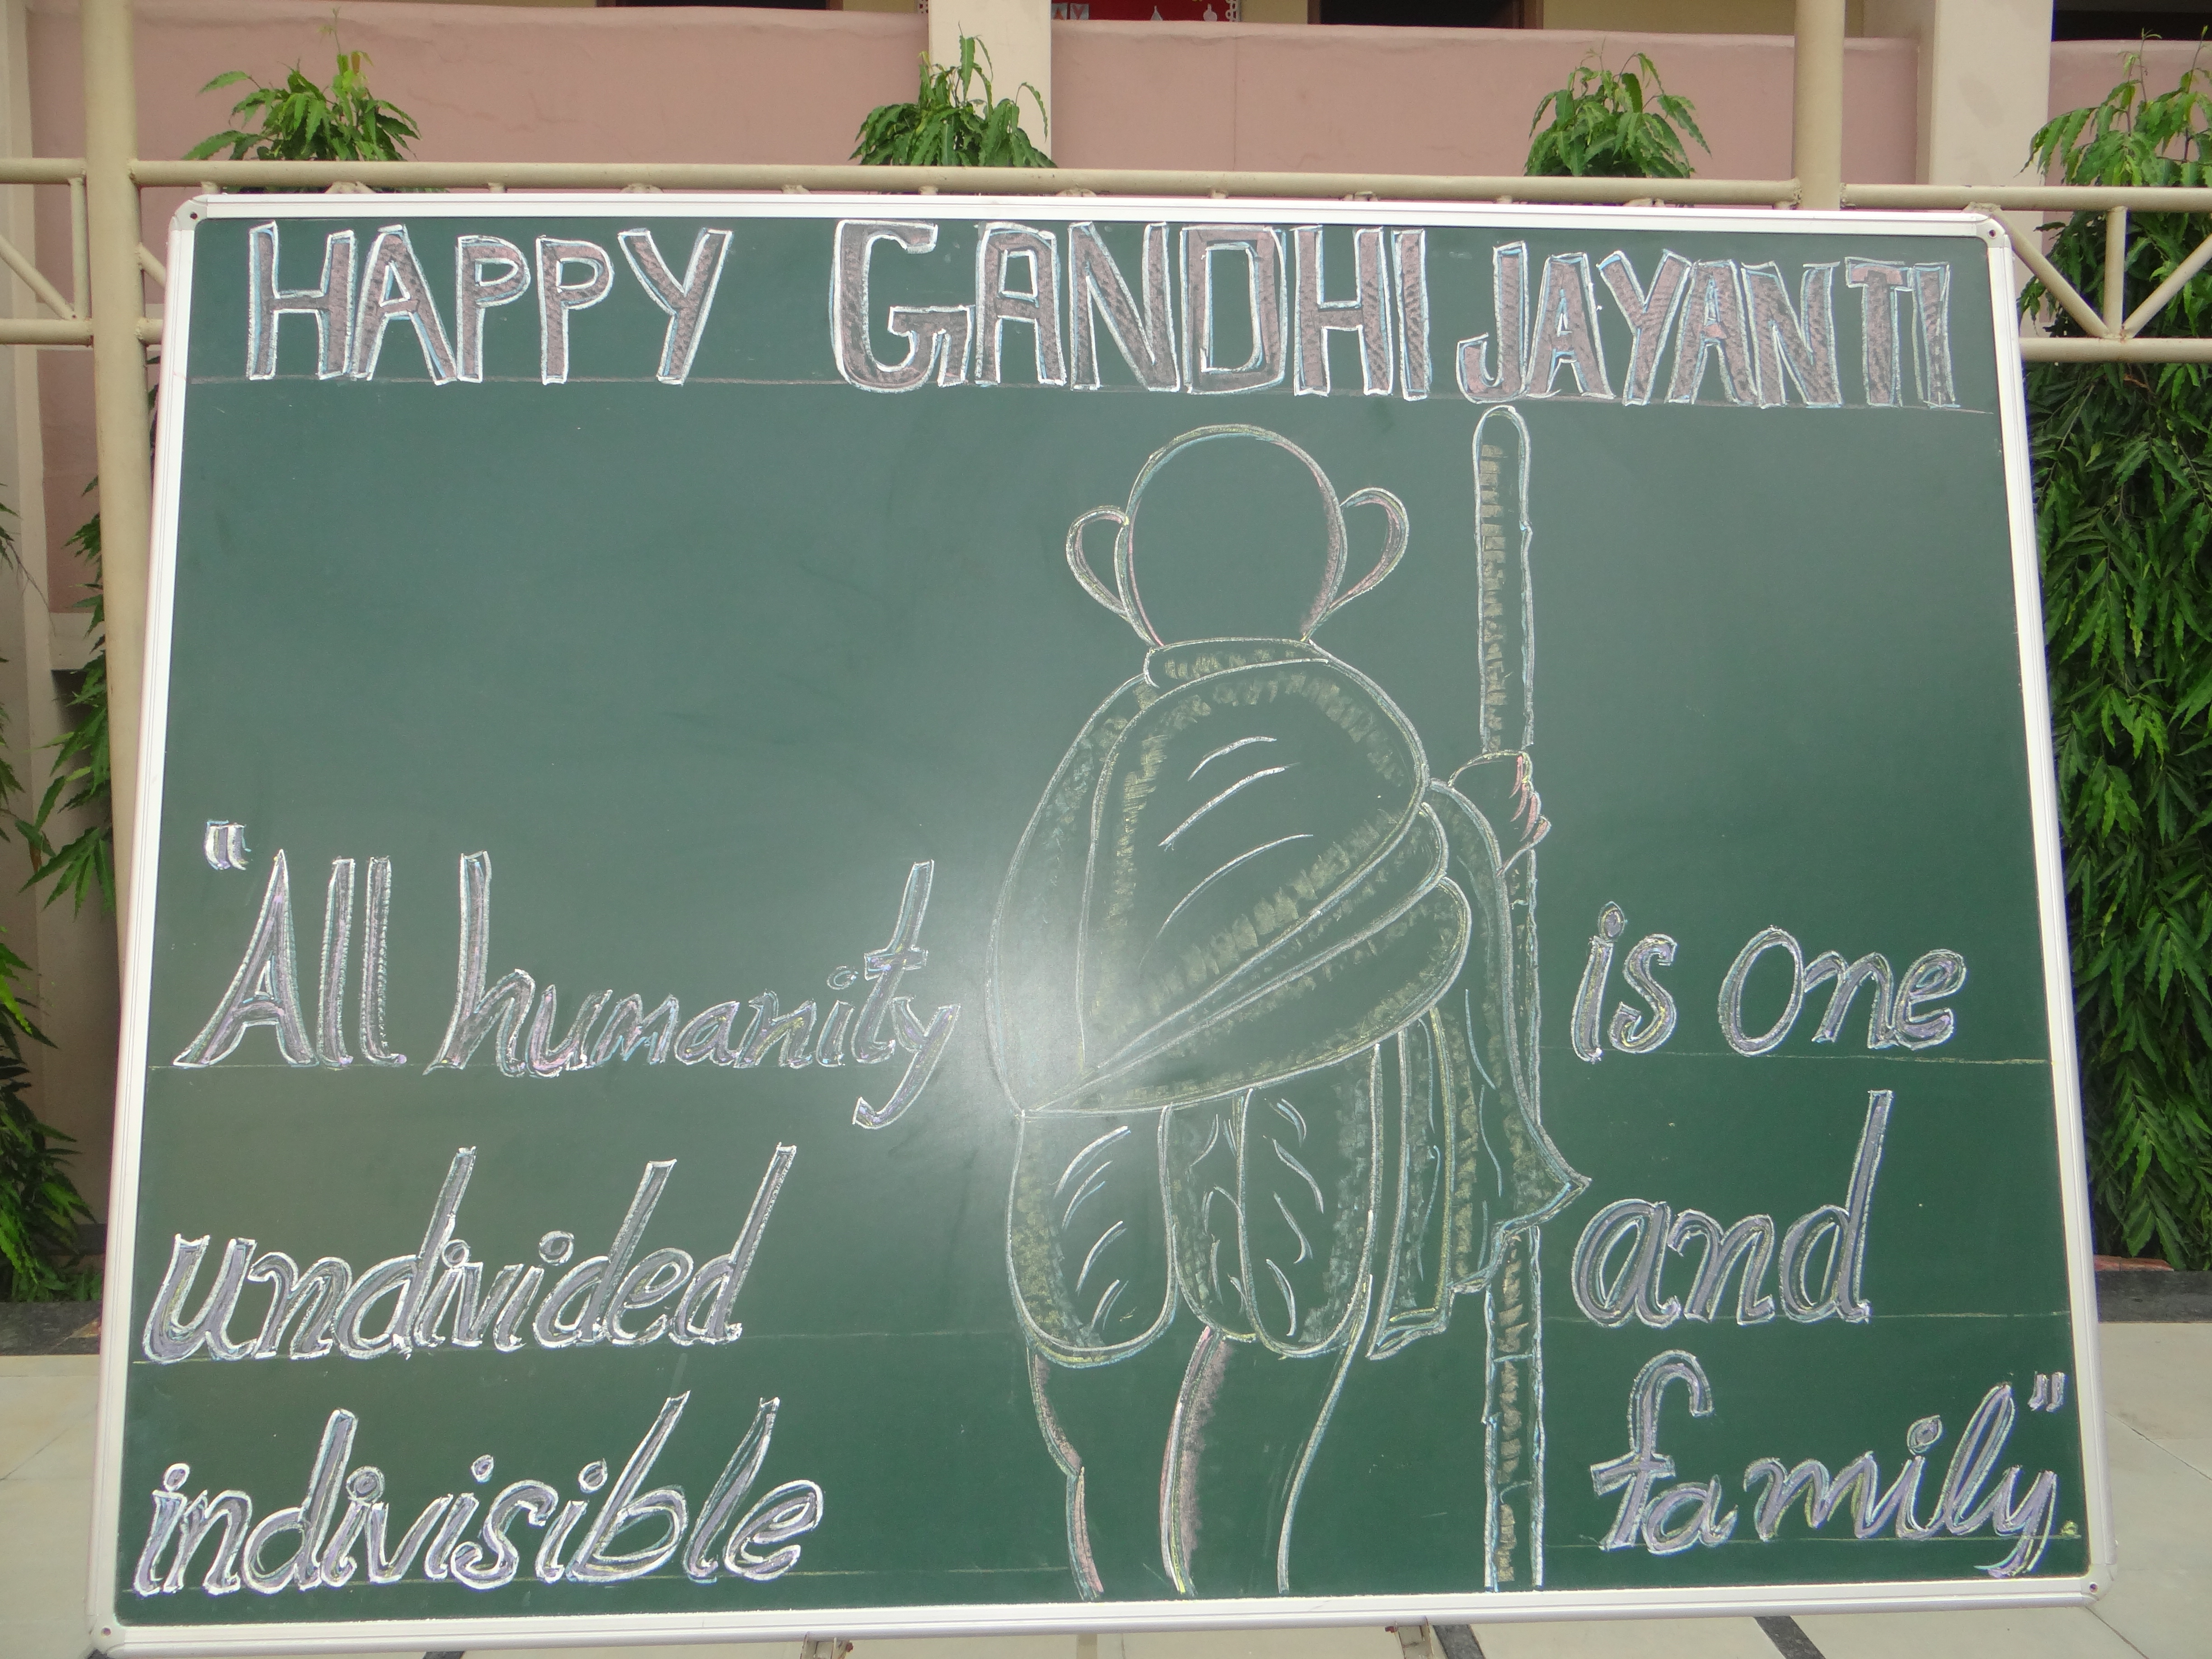 HAPPY GANDHI JAYANTI
"All humanity is one
undivided and
indivisible family".